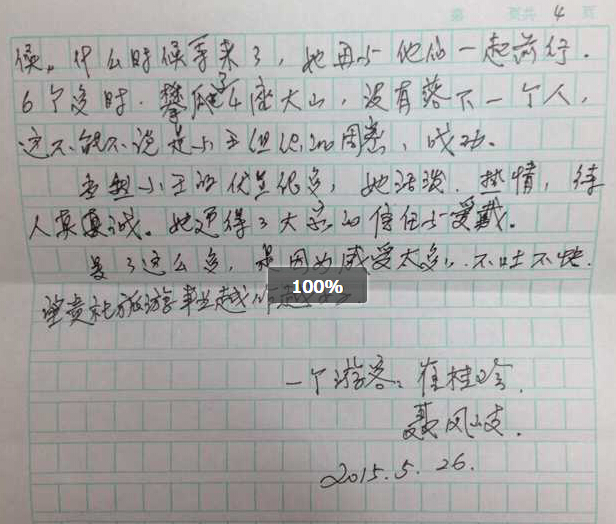 第 页共 4 页
候。什么时候等来了，她再与他们一起前行.
6个多时.攀爬了4座大山，没有落下一个人，
这不能不说是小王组织的周密，成功.
小王的优点很多，她活泼.热情，待
人真诚。她赢得了大家的信任与爱戴。
写了这么多，是因为感受太多，不吐不快.
望贵社旅游事业越作越
100%
一个游客：崔桂玲.
聂凤岐.
2015.5.26.